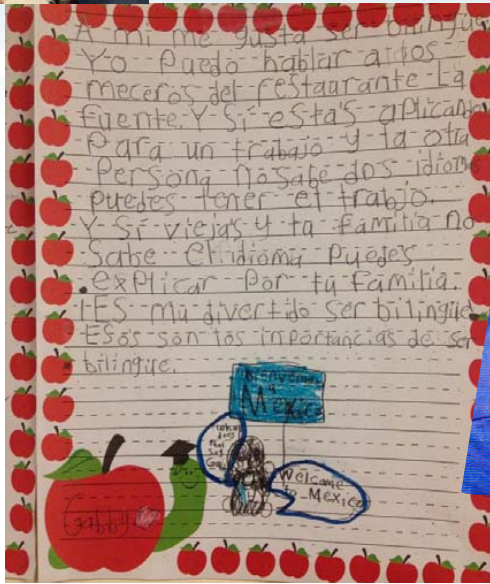 A mi me gusta ser bilingüe
Yo Puedo hablar a los
meceros del restaurante La
fuente. Y Si estas aplicando
Para un trabajo y la otra
Persona no sabe dos idiome
puedes tener el trabjo.
Y Si viejas y tu familia no
Sabe el idioma Puedes
explicar Por tu familia.
¡ES mu divertido ser bilingüe
ESos son los importancias de ser
bilingüe.
Bienvenidos
a
Mexico
What
does
that
Say
Welcome
to Mexico
Gabby